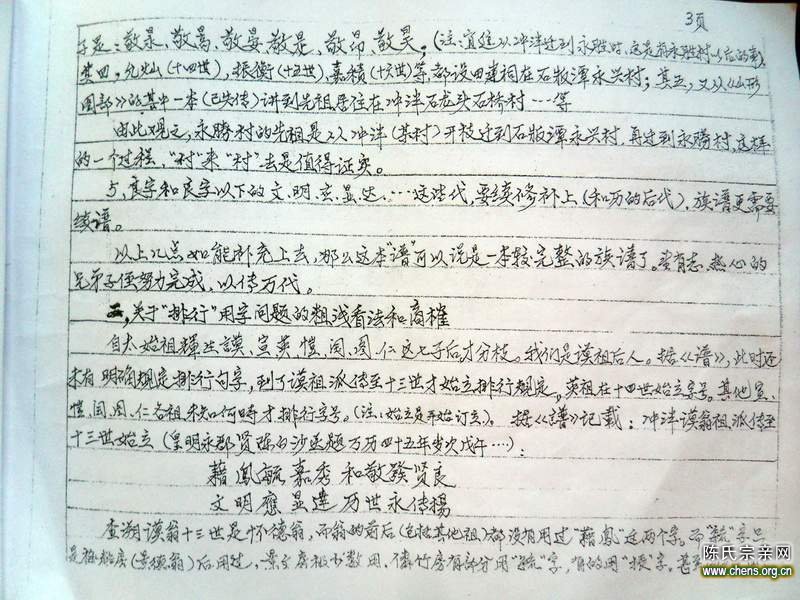 3页
于是：敬录、敬昌、敬晏、敬是、敬昂、敬昊，(注：宜廷从冲洋迁到永胜时，
其四，允灿(十四世)，振衡(十五世)，嘉积(十六世)等，都设四建祠在石版潭永兴村；其五，又从《山形
图部》的其中一本(已失传)讲到先祖居住在冲洋石龙头石桥村……等
由此观之，永勝村的先祖是从冲洋(某村)开枝迁到石版潭永兴村，再迁到永勝村，这样
的一个过程，“村”来“村”去是值得证实。
5、良字和良字以下的文、明、显、达、……这些代，要续修补上(和历的后代)，族谱更需要
续谱。
以上几点如能补充上去，那么这本“谱”可以说是一本较完整的族谱了。有志、热心的
兄弟子侄努力完成，以传万代。
二、关于“排行”用字问题的粗浅看法和商榷
自太始祖輝生謨、宣、英、愷、闾、周、仁这七子后才分枝。我们是谟祖后人。据《譜》，此时还
未有明确规定排行句字，到了谟祖派传至十三世才始立排行规定，英祖在十四世始立字号。其他宣、
愷、闾、周、仁各祖未知何時才排行字号。(注：始立是开始订立)。据《譜》记载：冲洋谟翁祖派传至
十三世始立(皇明永郡贤陈白沙丞题万历四十五年岁次戊午…)：
藉鳳毓嘉秀 和敬發贤良
文明應显達 万世永传揚
查溯谟翁十三世是怀德翁，而翁的前后(包括其他祖)都没有用过“藉鳳”这两个字。而“毓”字只
房(景德翁)后用过，房有部分用“毓”字，有的用“振”字，甚至
陈氏宗亲网
www.chens.org.cn